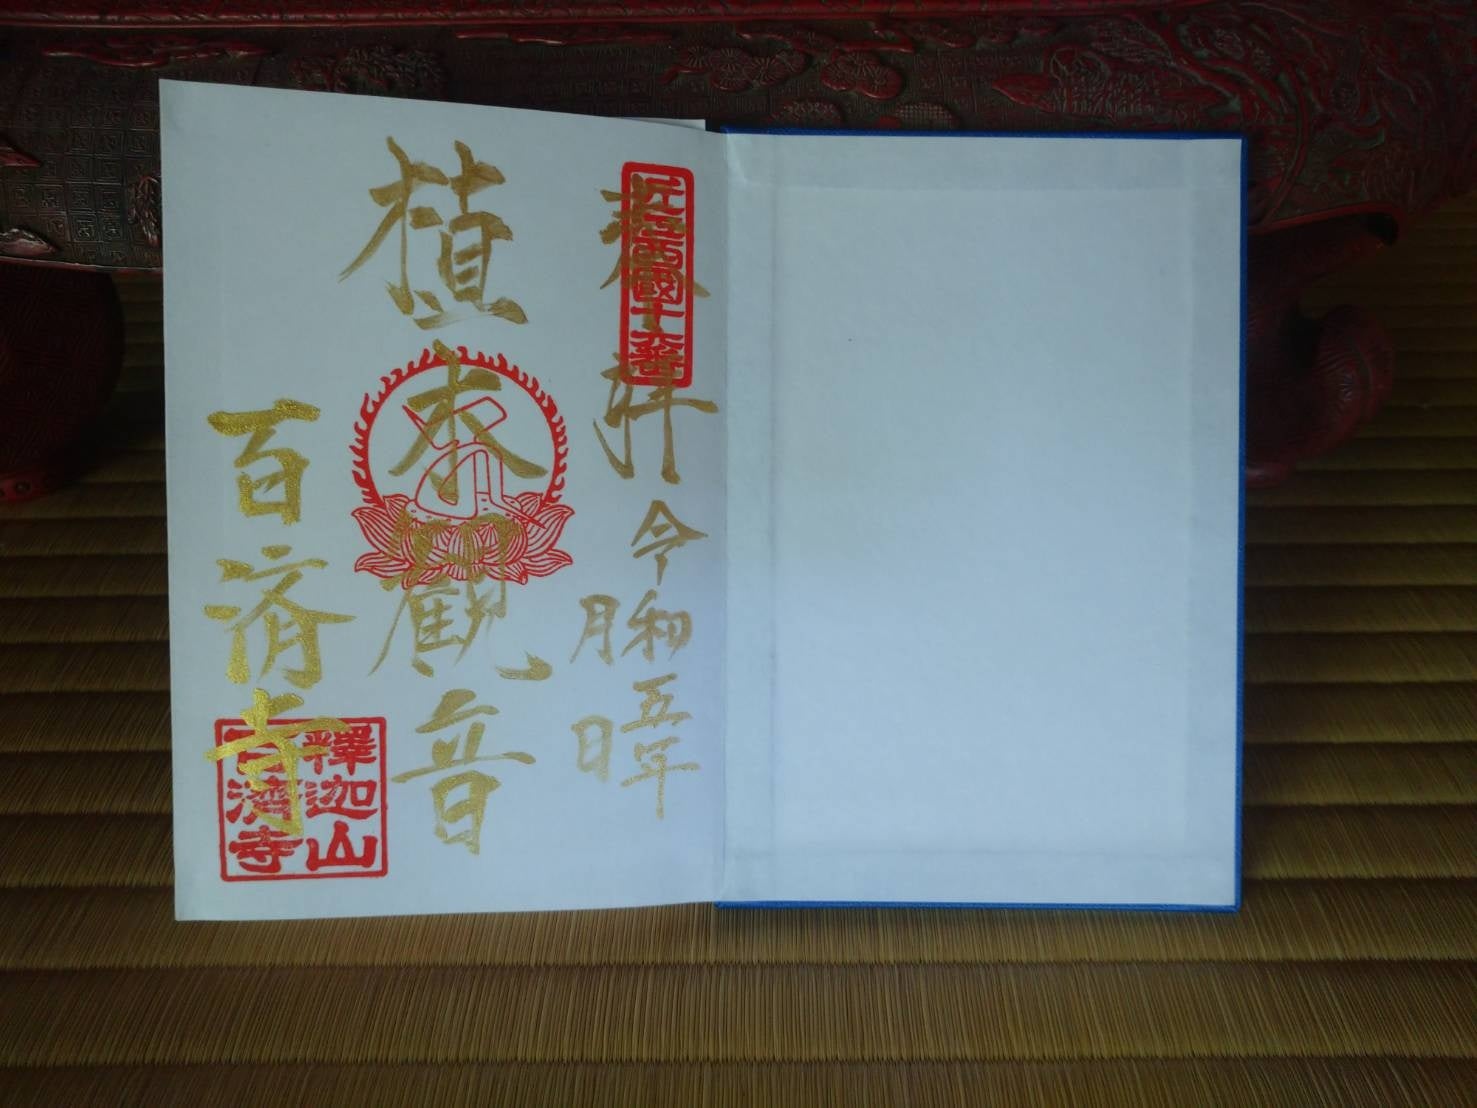 近江西國十六番
奉拝
令和五年
月 日
植木觀音
百済寺
釋迦山
百濟寺